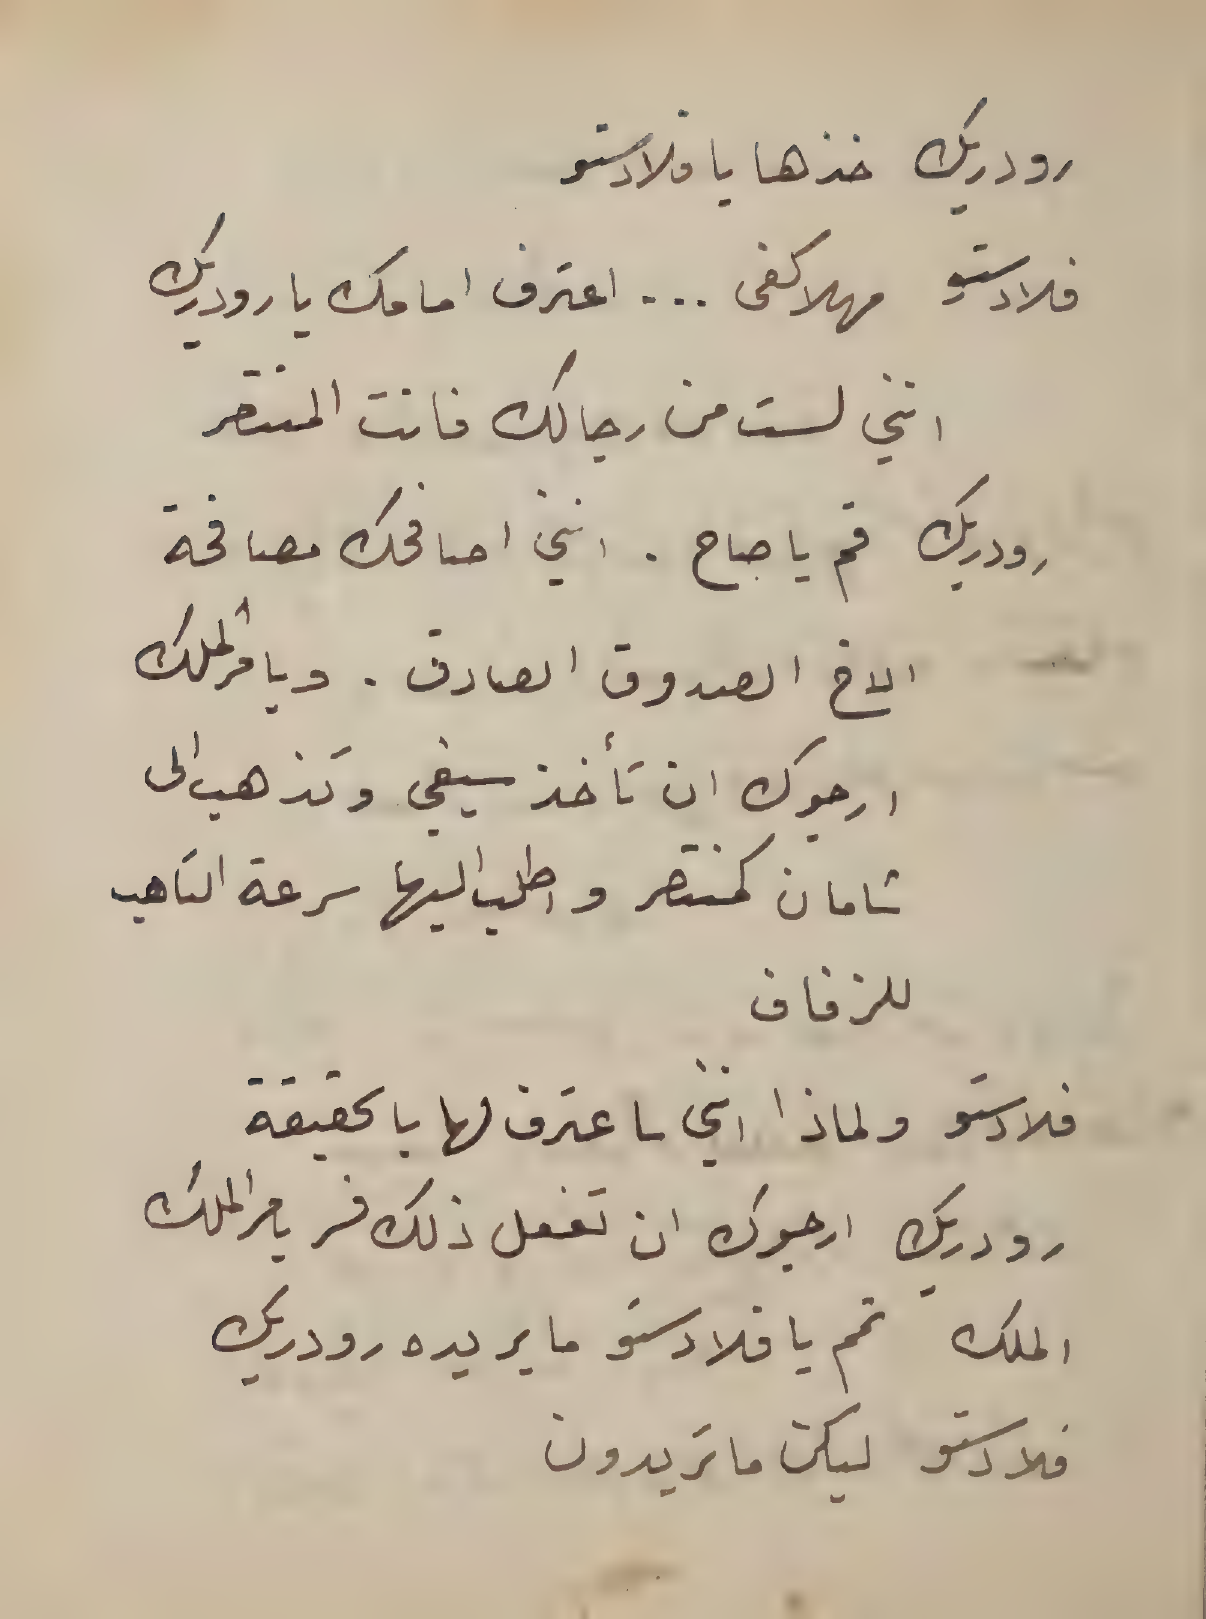 رودريك خذها يا فلادستو
فلادستو مهلا كفى ... اعترف امامك يا رودريك
انني لست من رجالك فانت المنتصر
رودريك قم يا صاح . انني اصافحك مصافحة
الاخ الصدوق الصادق . وبامر الملك
ارجوك ان تأخذ سيفي وتذهب الى
شامان كمنتصر واطلب اليها سرعة التاهب
للزفاف
فلادستو ولماذا انني ساعترف لها بالحقيقة
رودريك ارجوك ان تفعل ذلك فسر بامر الملك
الملك تمم يا فلادستو ما يريده رودريك
فلادستو ليكن ما تريدون